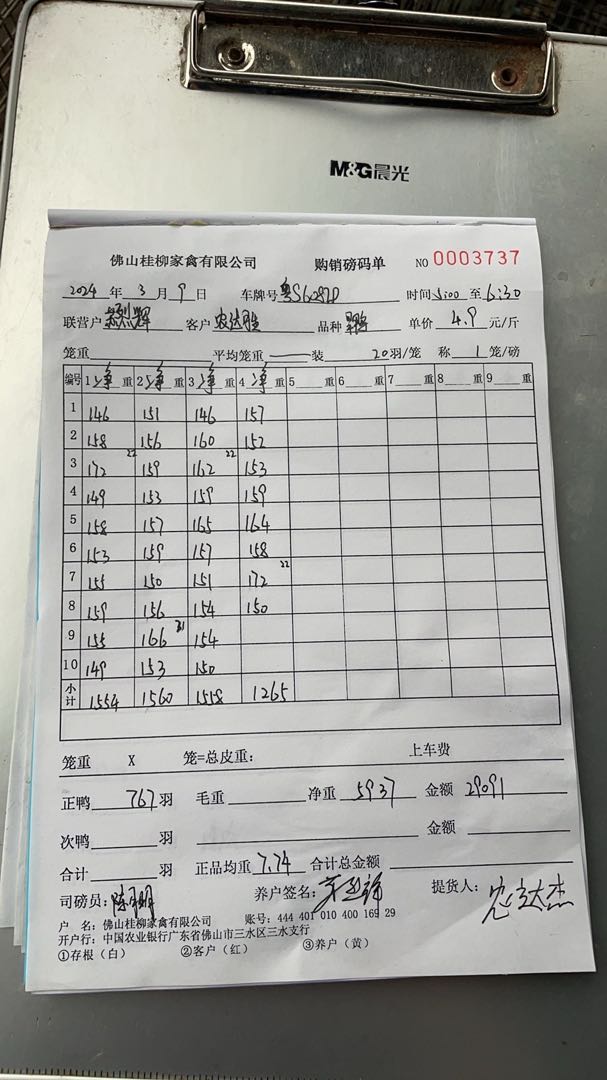 M&G晨光
佛山桂柳家禽有限公司 购销磅码单 NO 0003737
2024 年 3 月 9 日 车牌号 粤S6087D 时间 5:00 至 6:30
联营户 辉 客户 农达 品种 单价 4.9 元/斤
笼重 平均笼重 装 20 羽/笼 称 1 笼/磅
编号 1 净 重 2 净 重 3 净 重 4 净 重 5 重 6 重 7 重 8 重 9 重
1 146 151 146 157
2 158 156 160 152
3 172 22 159 162 22 153
4 149 153 159 159
5 158 157 165 164
6 153 159 157 158
7 155 150 151 172 22
8 159 156 154 150
9 155 166 21 154
10 149 153 150
小计 1554 1560 1558 1265
笼重 X 笼=总皮重: 上车费
正鸭 767 羽 毛重 净重 5937 金额 29091
次鸭 羽 金额
合计 羽 正品均重 7.74 合计总金额
司磅员: 陈 明 养户签名: 提货人: 达杰
户 名: 佛山桂柳家禽有限公司 账号: 444 401 010 400 169 29
开户行: 中国农业银行广东省佛山市三水区三水支行
①存根（白） ②客户（红） ③养户（黄）